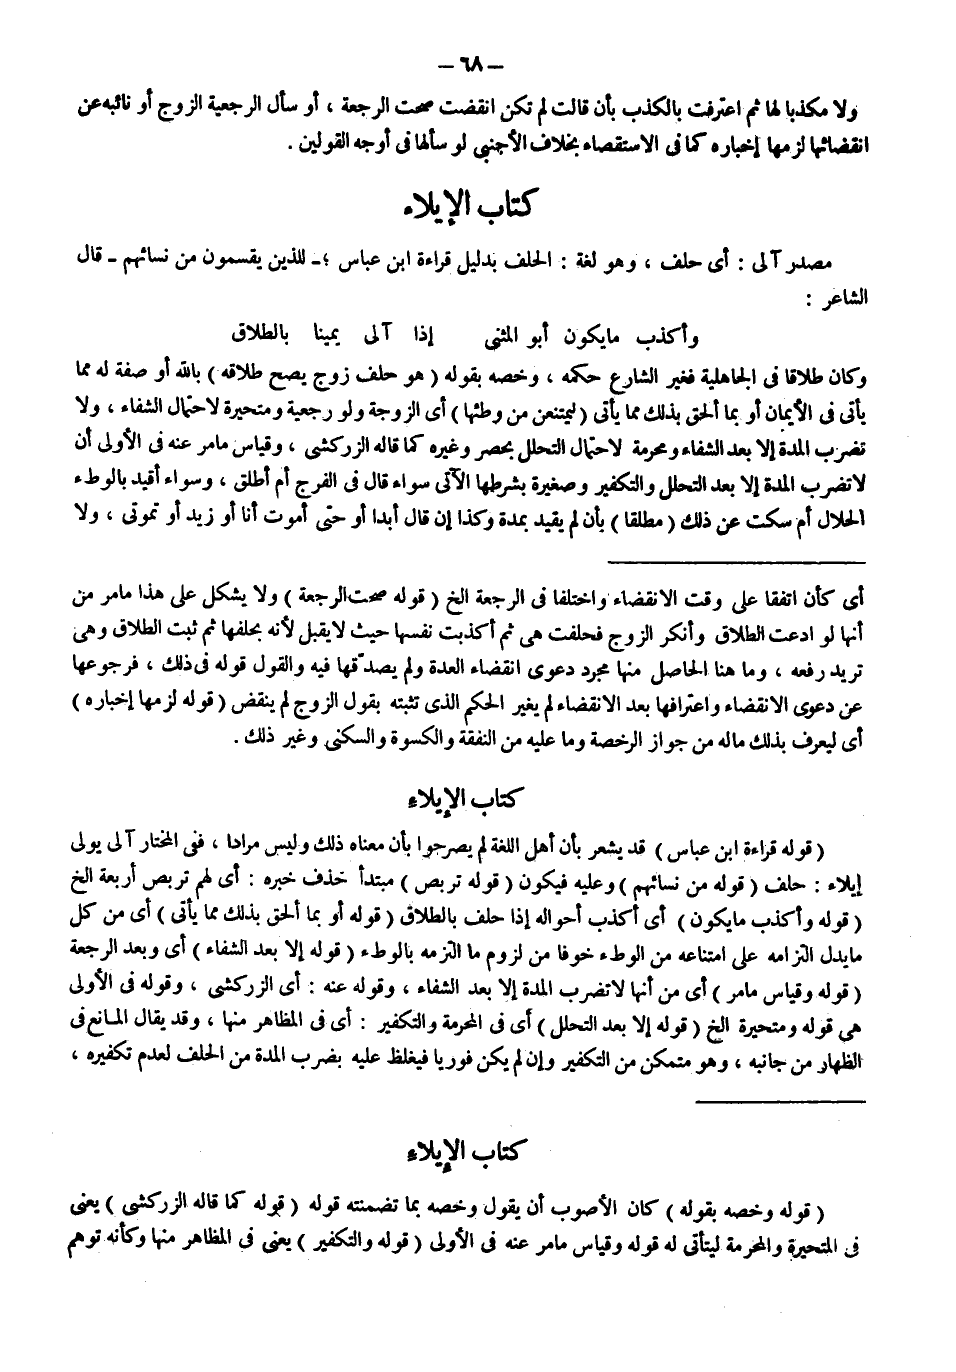 — ٦٨ —
ولا مكذبا لها ثم اعترفت بالكذب بأن قالت لم تكن انقضت صحت الرجعة ، أو سأل الرجعية الزوج أو نائبه عن
انقضائها لزمها إخباره كما فى الاستقصاء بخلاف الأجنبي لو سألها فى أوجه القولين .
كتاب الإيلاء
مصدر آلى : أى حلف ، وهو لغة : الحلف بدليل قراءة ابن عباس ؛ـ للذين يقسمون من نسائهم ـ قال
الشاعر :
وأكذب مايكون أبو المثنى إذا آلى يمينا بالطلاق
وكان طلاقا فى الجاهلية فغير الشارع حكمه ، وخصه بقوله ( هو حلف زوج يصح طلاقه ) بالله أو صفة له مما
يأتى فى الأيمان أو بما ألحق بذلك مما يأتى ( ليمتنعن من وطئها ) أى الزوجة ولو رجعية ومتحيرة لاحتمال الشفاء ، ولا
تضرب المدة إلا بعد الشفاء ومحرمة لاحتمال التحلل بحصر وغيره كما قاله الزركشى ، وقياس مامر عنه فى الأولى أن
لاتضرب المدة إلا بعد التحلل والتكفير وصغيرة بشرطها الآتى سواء قال فى الفرج أم أطلق ، وسواء أقيد بالوطء
الحلال أم سكت عن ذلك ( مطلقا ) بأن لم يقيد بمدة وكذا إن قال أبدا أو حتى أموت أنا أو زيد أو تموتى ، ولا
أى كأن اتفقا على وقت الانقضاء واختلفا فى الرجعة الخ ( قوله صحت الرجعة ) ولا يشكل على هذا مامر من
أنها لو ادعت الطلاق وأنكر الزوج فحلفت هى ثم أكذبت نفسها حيث لايقبل لأنه بحلفها ثم ثبت الطلاق وهى
تريد رفعه ، وما هنا الحاصل منها مجرد دعوى انقضاء العدة ولم يصدّقها فيه والقول قوله فى ذلك ، فرجوعها
عن دعوى الانقضاء واعترافها بعد الانقضاء لم يغير الحكم الذى تثبته بقول الزوج لم ينقض ( قوله لزمها إخباره )
أى ليعرف بذلك ماله من جواز الرخصة وما عليه من النفقة والكسوة والسكنى وغير ذلك .
كتاب الإيلاء
( قوله قراءة ابن عباس ) قد يشعر بأن أهل اللغة لم يصرحوا بأن معناه ذلك وليس مرادا ، ففى المختار آلى يولى
إيلاء : حلف ( قوله من نسائهم ) وعليه فيكون ( قوله تربص ) مبتدأ خذف خبره : أى لهم تربص أربعة الخ
( قوله وأكذب مايكون ) أى أكذب أحواله إذا حلف بالطلاق ( قوله أو بما ألحق بذلك مما يأتى ) أى من كل
مايدل التزامه على امتناعه من الوطء خوفا من لزوم ما التزمه بالوطء ( قوله إلا بعد الشفاء ) أى وبعد الرجعة
( قوله وقياس مامر ) أى من أنها لاتضرب المدة إلا بعد الشفاء ، وقوله عنه : أى الزركشى ، وقوله فى الأولى
هى قوله ومتحيرة الخ ( قوله إلا بعد التحلل ) أى فى المحرمة والتكفير : أى فى المظاهر منها ، وقد يقال المانع فى
الظهار من جانبه ، وهو متمكن من التكفير وإن لم يكن فوريا فيغلظ عليه بضرب المدة من الحلف لعدم تكفيره ،
كتاب الإيلاء
( قوله وخصه بقوله ) كان الأصوب أن يقول وخصه بما تضمنته قوله ( قوله كما قاله الزركشى ) يعنى
فى المتحيرة والمحرمة ليتأتى له قوله وقياس مامر عنه فى الأولى ( قوله والتكفير ) يعنى فى المظاهر منها وكأنه توهم